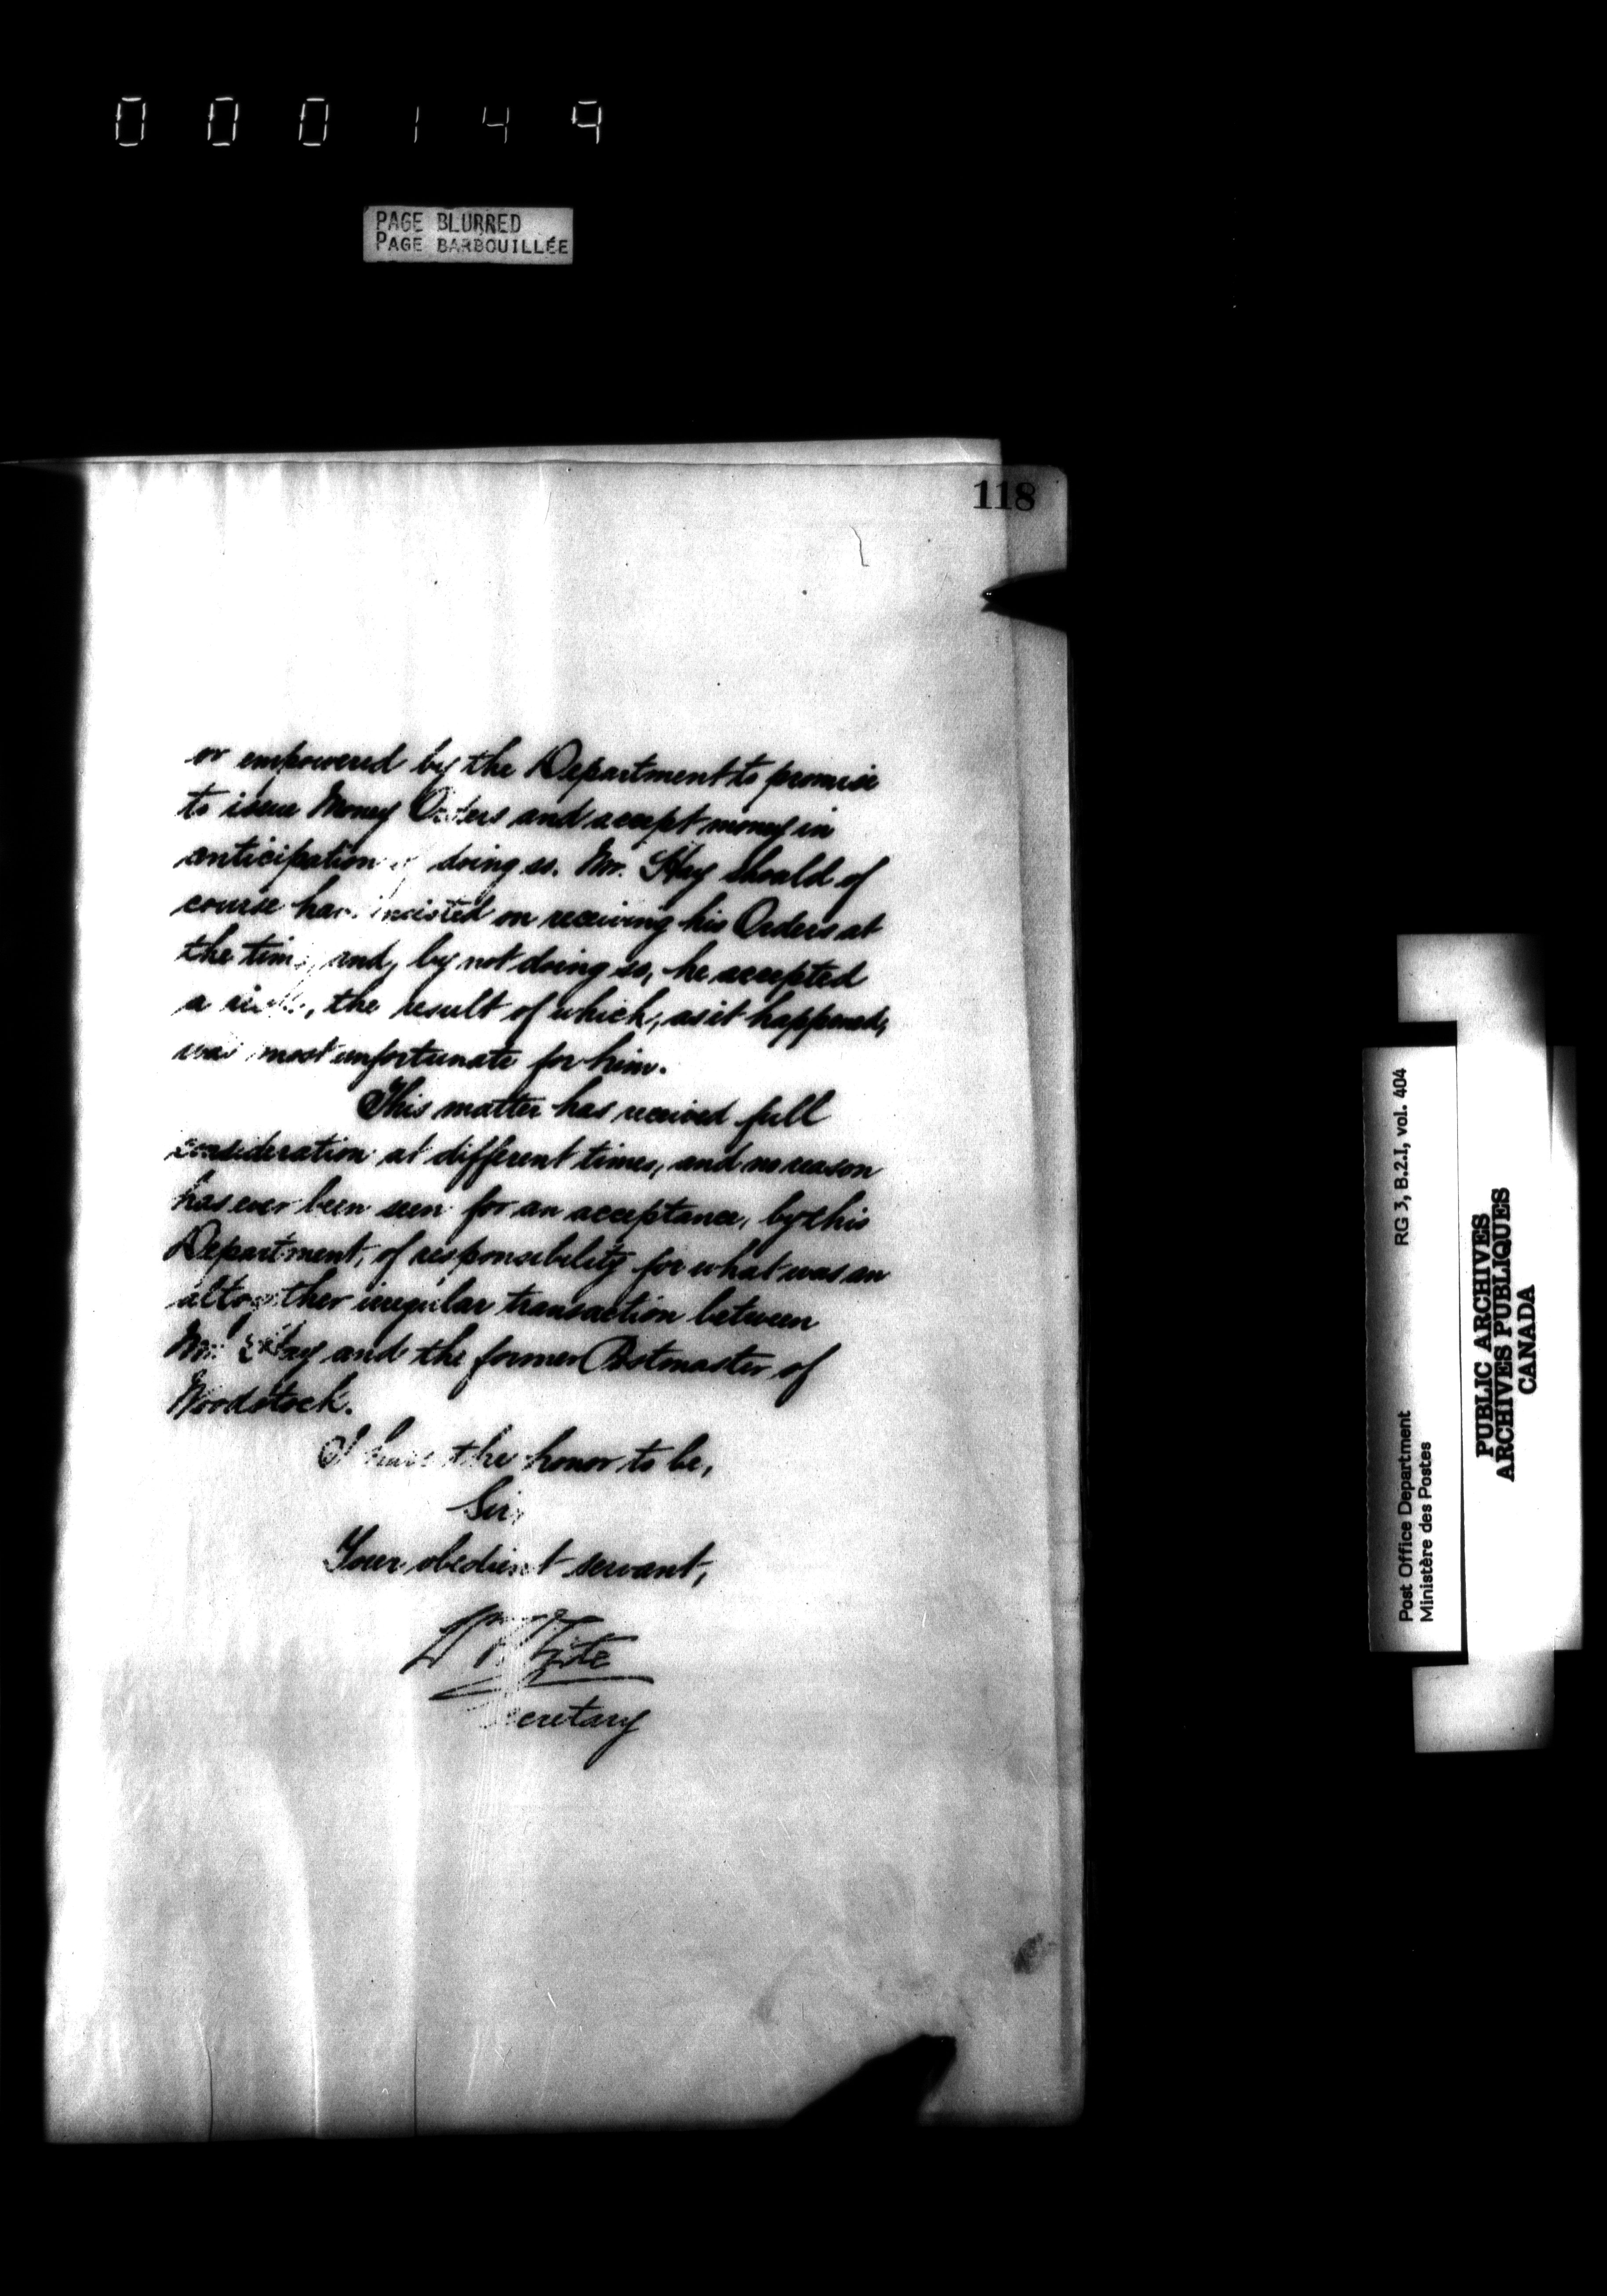 000149
PAGE BLURRED
PAGE BARBOUILLÉE
118
or empowered by the Department to promise
to issue Money Orders and accept money in
anticipation of doing so. Mr. Hay should of
course have insisted on receiving his Orders at
the time, and, by not doing so, he accepted
a risk, the result of which, as it happened,
was most unfortunate for him.
This matter has received full
consideration at different times, and no reason
has ever been seen for an acceptance, by this
Department, of responsibility for what was an
altogether irregular transaction between
Mr. Hay and the former Postmaster of
Woodstock.
I have the honor to be,
Sir,
Your obedient servant,
Secretary
RG 3, B.2.I, vol. 404
Post Office Department
Ministère des Postes
PUBLIC ARCHIVES
ARCHIVES PUBLIQUES
CANADA